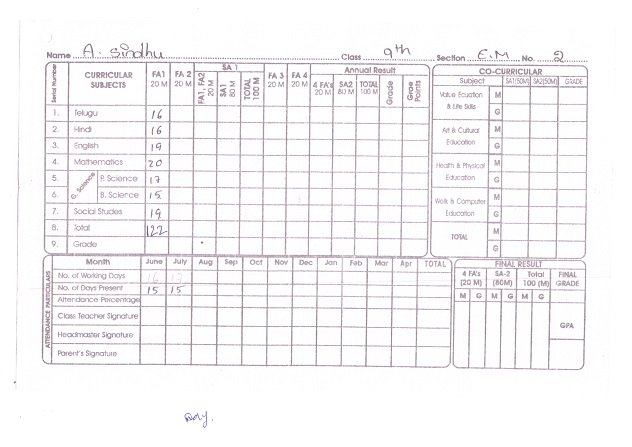 Name A. Sindhu Class 9th Section E.M No. 2
Serial Number CURRICULAR SUBJECTS FA1 20 M FA 2 20 M SA 1 FA1, FA2 20 M SA1 80 M TOTAL 100 M FA 3 20 M FA 4 20 M Annual Result 4 FA's 20 M SA2 80 M TOTAL 100 M Grade Grade Points
CO-CURRICULAR
Subject SA1(50M) SA2(50M) GRADE
Value Ecuation & Life Skils M G
1. Telugu 16
2. Hindi 16
Art & Cultural Education M G
3. English 19
4. Mathematics 20
Health & Physical Education M G
5. G. Science P. Science 17
6. B. Science 15
Work & Computer Education M G
7. Social Studies 19
8. Total 122
TOTAL M G
9. Grade
ATTENDANCE PARTICULARS
Month June July Aug Sep Oct Nov Dec Jan Feb Mar Apr TOTAL
No. of Working Days 16
No. of Days Present 15 15
Attendance Percentage
Class Teacher Signature
Headmaster Signature
Parent's Signature
FINAL RESULT
4 FA's (20 M) SA-2 (80M) Total 100 (M) FINAL GRADE
M G M G M G
GPA